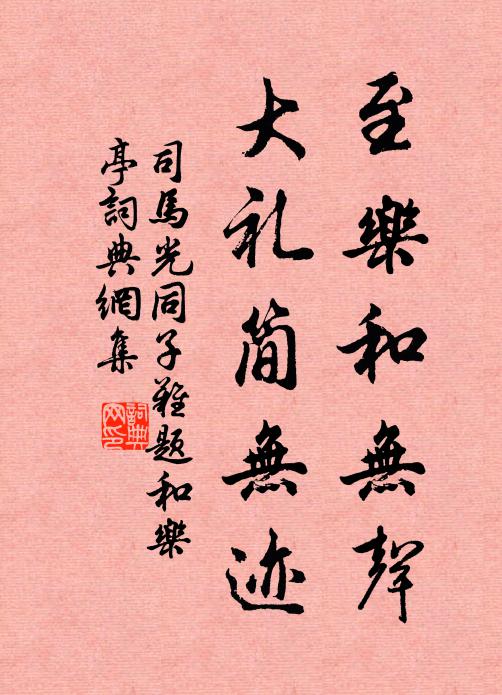 至樂和無聲
大礼簡無迹
司馬光同子難題和樂
亭詞典網集
詞典
网印